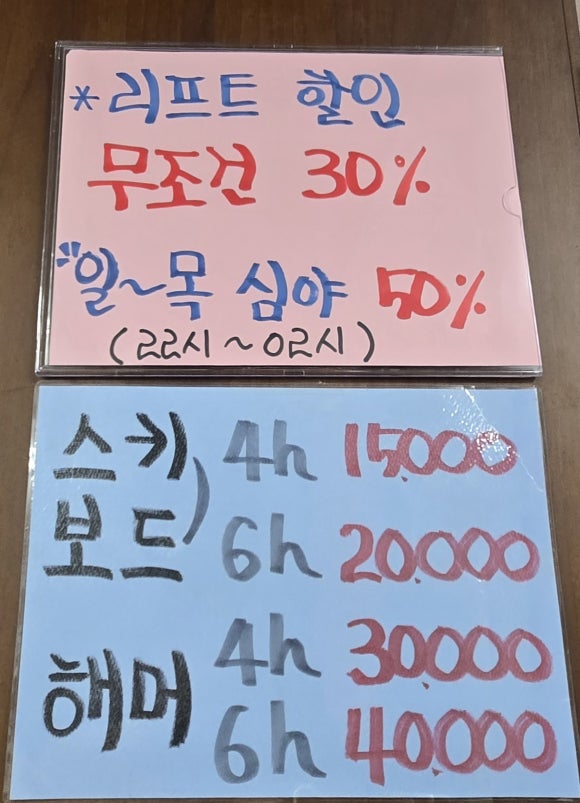 *리프트 할인
무조건 30%
일~목 심야 50%
(22시~02시)
스키) 4h 15,000
보드 6h 20,000
해머 4h 30,000
6h 40,000